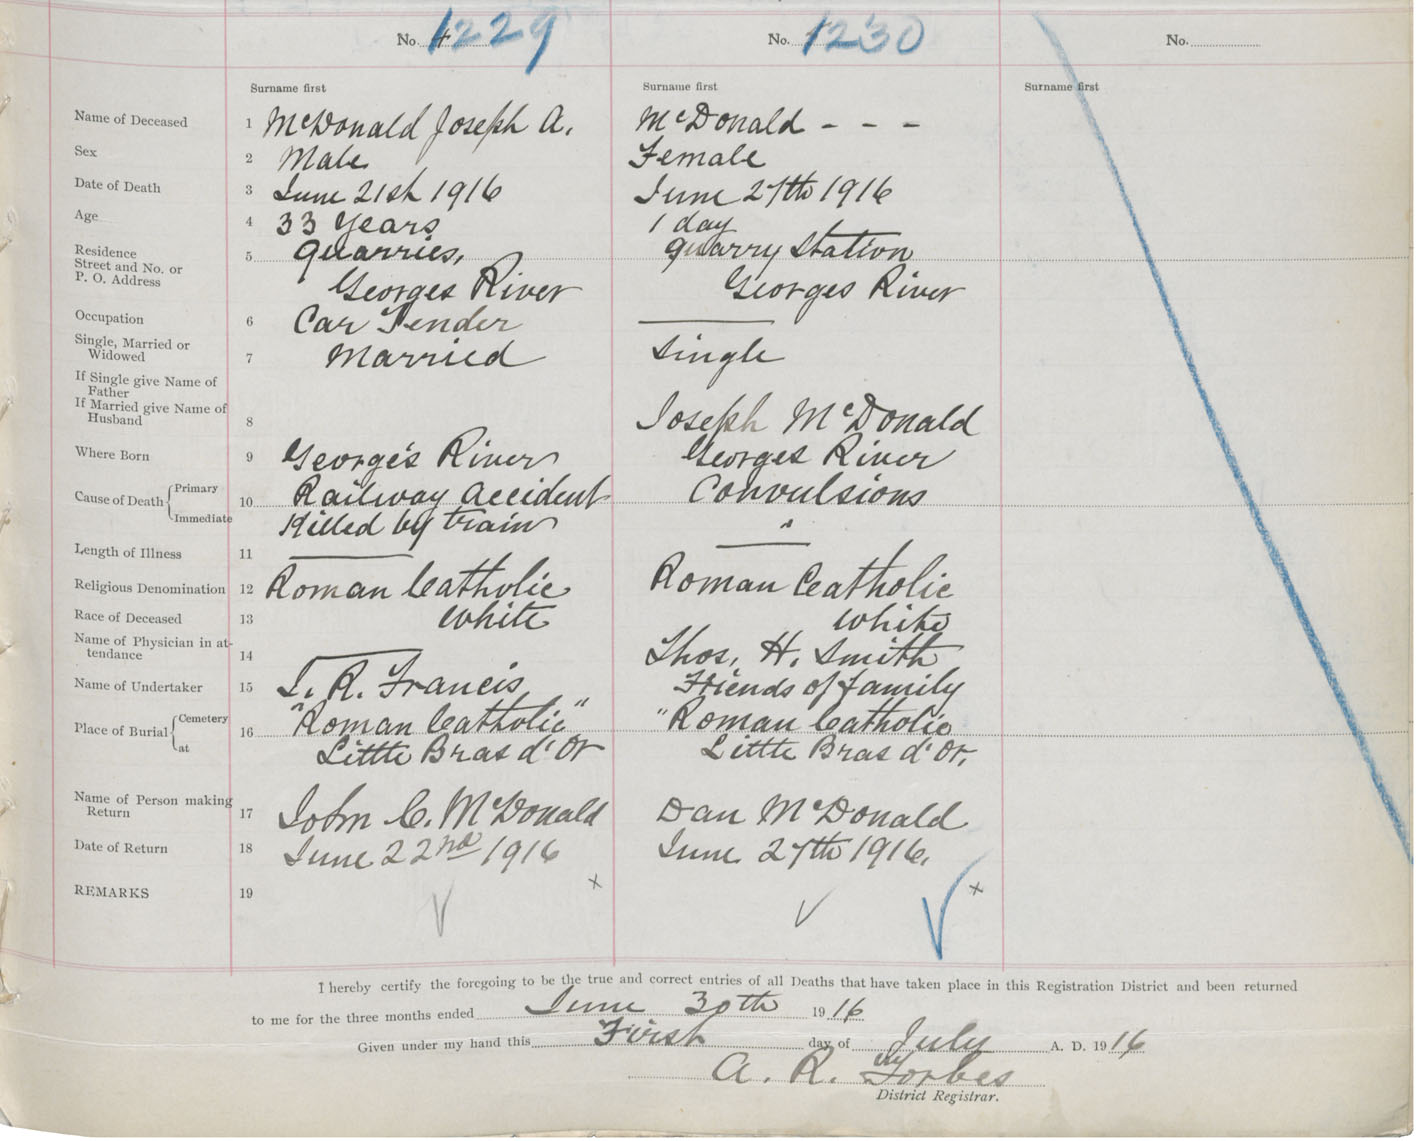 No. 1229 No. 1230 No.
Surname first Surname first Surname first
Name of Deceased 1 McDonald Joseph A. McDonald - - -
Sex 2 Male Female
Date of Death 3 June 21st 1916 June 27th 1916
Age 4 33 Years 1 day
Residence
Street and No. or 5 Quarries, Quarry Station
P. O. Address Georges River Georges River
Occupation 6 Car Tender
Single, Married or
Widowed 7 Married Single
If Single give Name of
Father
If Married give Name of
Husband 8 Joseph McDonald
Where Born 9 George's River Georges River
Cause of Death Primary 10 Railway accident Convulsions
Immediate Killed by train "
Length of Illness 11
Religious Denomination 12 Roman Catholic Roman Catholic
Race of Deceased 13 White White
Name of Physician in at-
tendance 14 Thos. H. Smith
Name of Undertaker 15 R. Francis Friends of family
Place of Burial Cemetery 16 "Roman Catholic" "Roman Catholic
at Little Bras d'Or Little Bras d'Or,
Name of Person making
Return 17 John C. McDonald Dan McDonald
Date of Return 18 June 22nd 1916 June 27th 1916.
REMARKS 19
I hereby certify the foregoing to be the true and correct entries of all Deaths that have taken place in this Registration District and been returned
to me for the three months ended June 30th 1916
Given under my hand this First day of July A. D. 1916
A. R. Forbes
District Registrar.